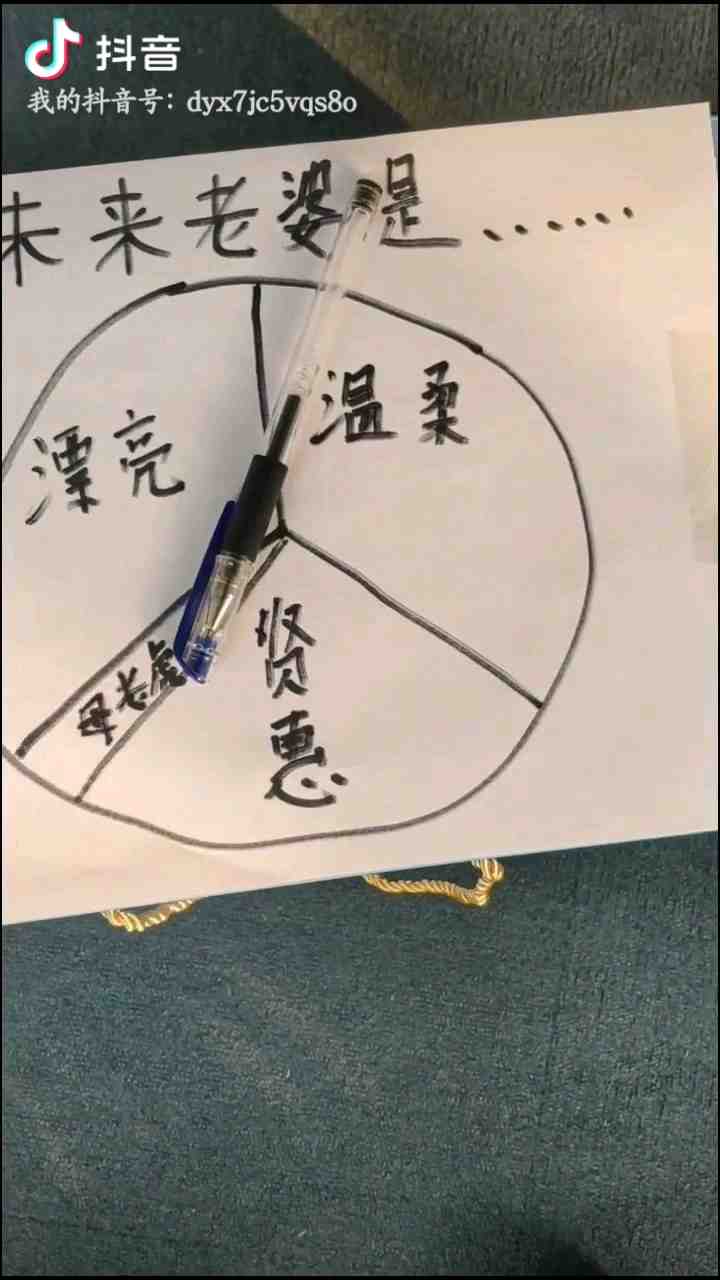 抖音
我的抖音号：dyx7jc5vqs8o
未来老婆是……
漂亮
温柔
母老虎
贤惠